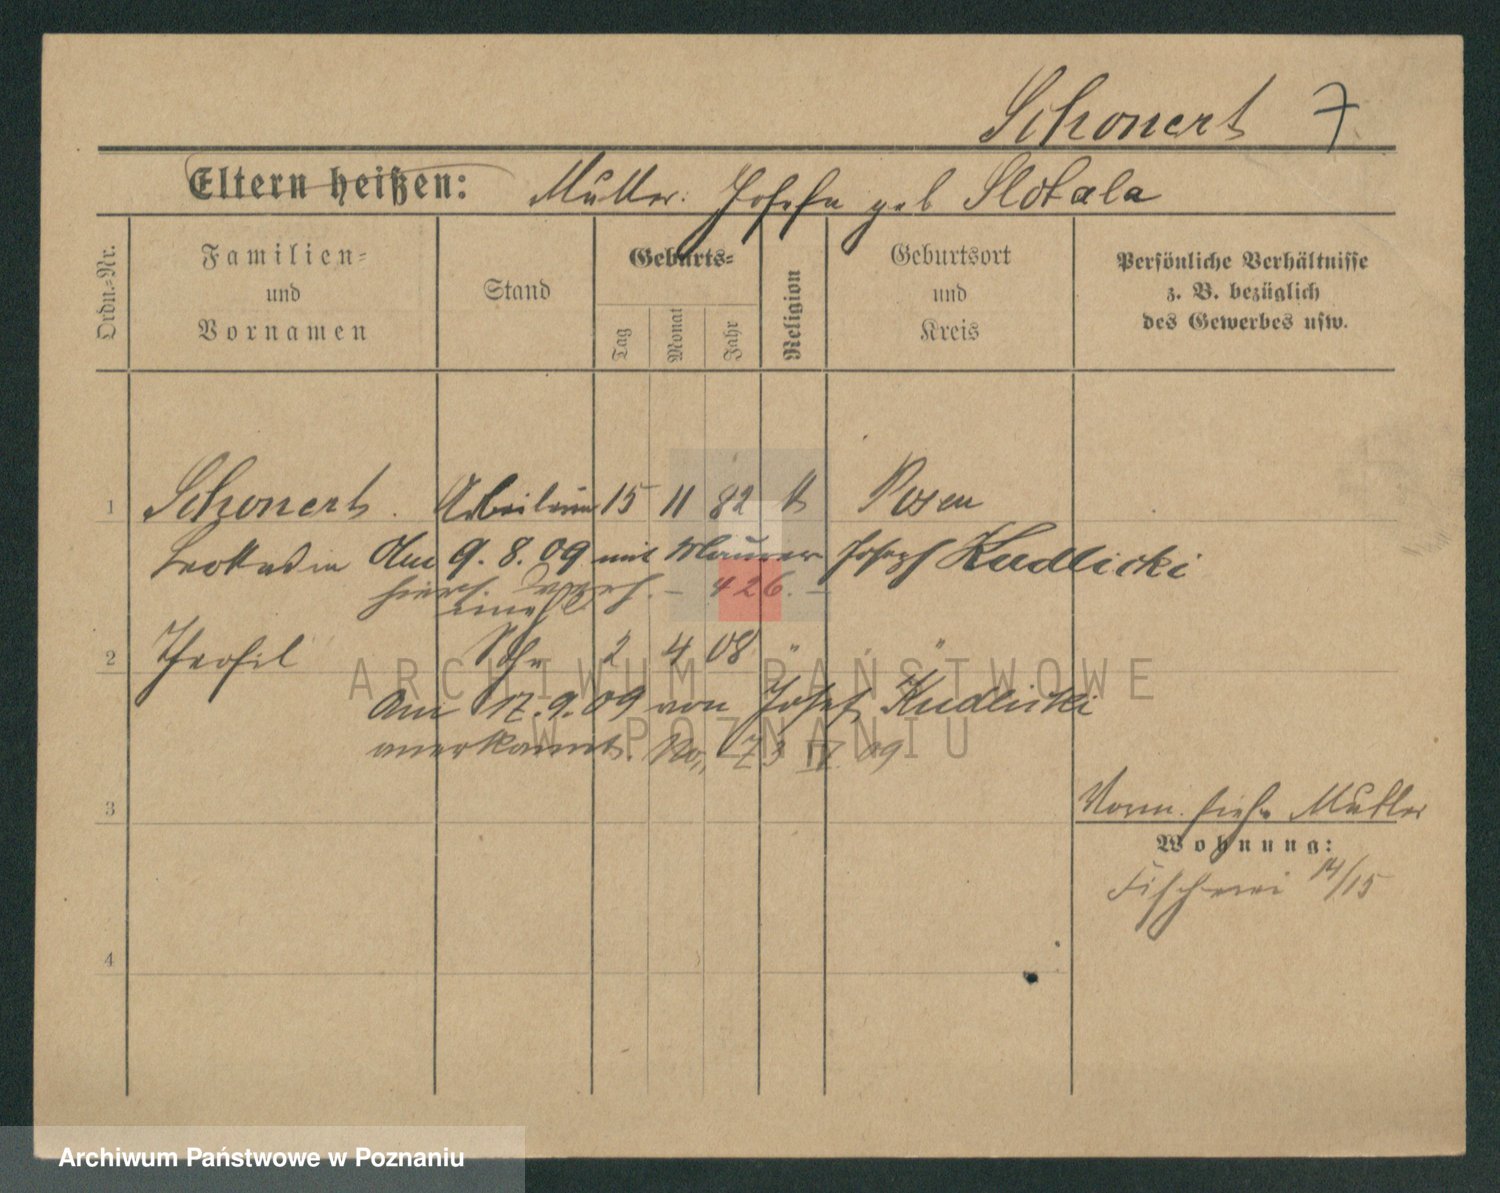 Schonert 7
Eltern heißen: Mutter: Josefa geb Slotala
Ordn.-Nr.
Familien- und Vornamen
Stand
Geburts-
Tag
Monat
Jahr
Religion
Geburtsort und Kreis
Persönliche Verhältnisse z. B. bezüglich des Gewerbes usw.
1 Schonert. Arbeiterin 15 11 82 k Posen
Leokadia Am 9.8.09 mit Maurer Josef Kudlicki
hiers. - 426. -
2 Theofil Sohn 2 4 08 " "
Am 17.9.09 von Josef Kudlicki
anerkannt. No 73 IV. 09
3
Vorm. siehe Mutter
Wohnung:
Fischerei 14/15
4
ARCHIWUM PAŃSTWOWE
W POZNANIU
Archiwum Państwowe w Poznaniu